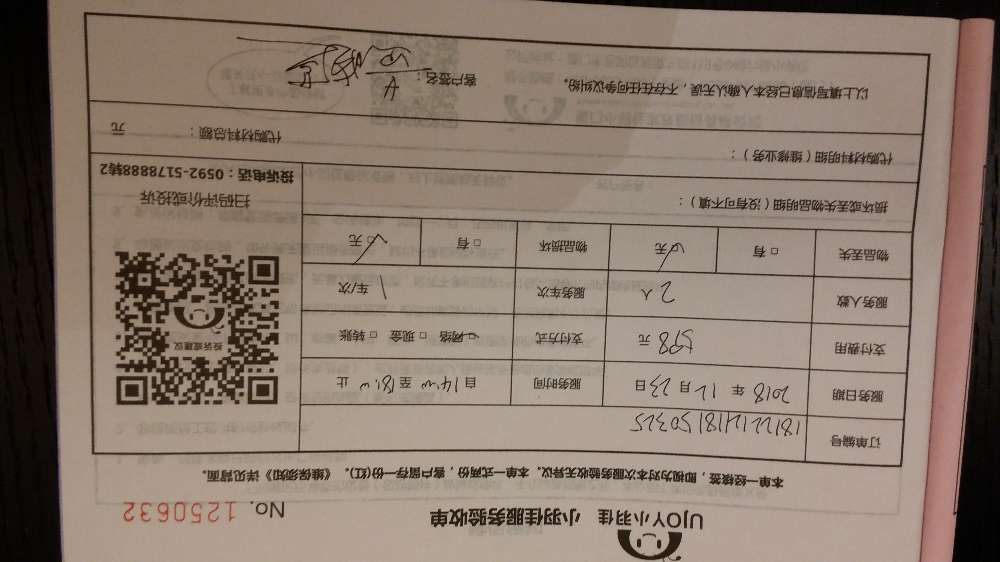 UJOY小羽佳 小羽佳服务验收单 No. 1250632
本单一经核签，即视为对本次服务验收无异议。本单一式两份，客户留存一份(红)。《维保须知》详见背面。
订单编号 18122121418150325
服务日期 2018 年 12 月 23 日 服务时间 自 14:00 至 18:00 止
支付费用 598 元 支付方式 网络 □ 现金 □ 转账
服务人数 2 人 服务车次 1 车/次
物品丢失 □ 有 □ 无 物品损坏 □ 有 □ 无
投诉或建议
扫码评价或投诉
投诉电话：0592-5178888转2
损坏或丢失物品明细（没有可不填）：
代购材料明细（维修业务）： 代购材料总额： 元
以上填写信息已经本人确认无误，不存在任何争议纠纷。 客户签名：